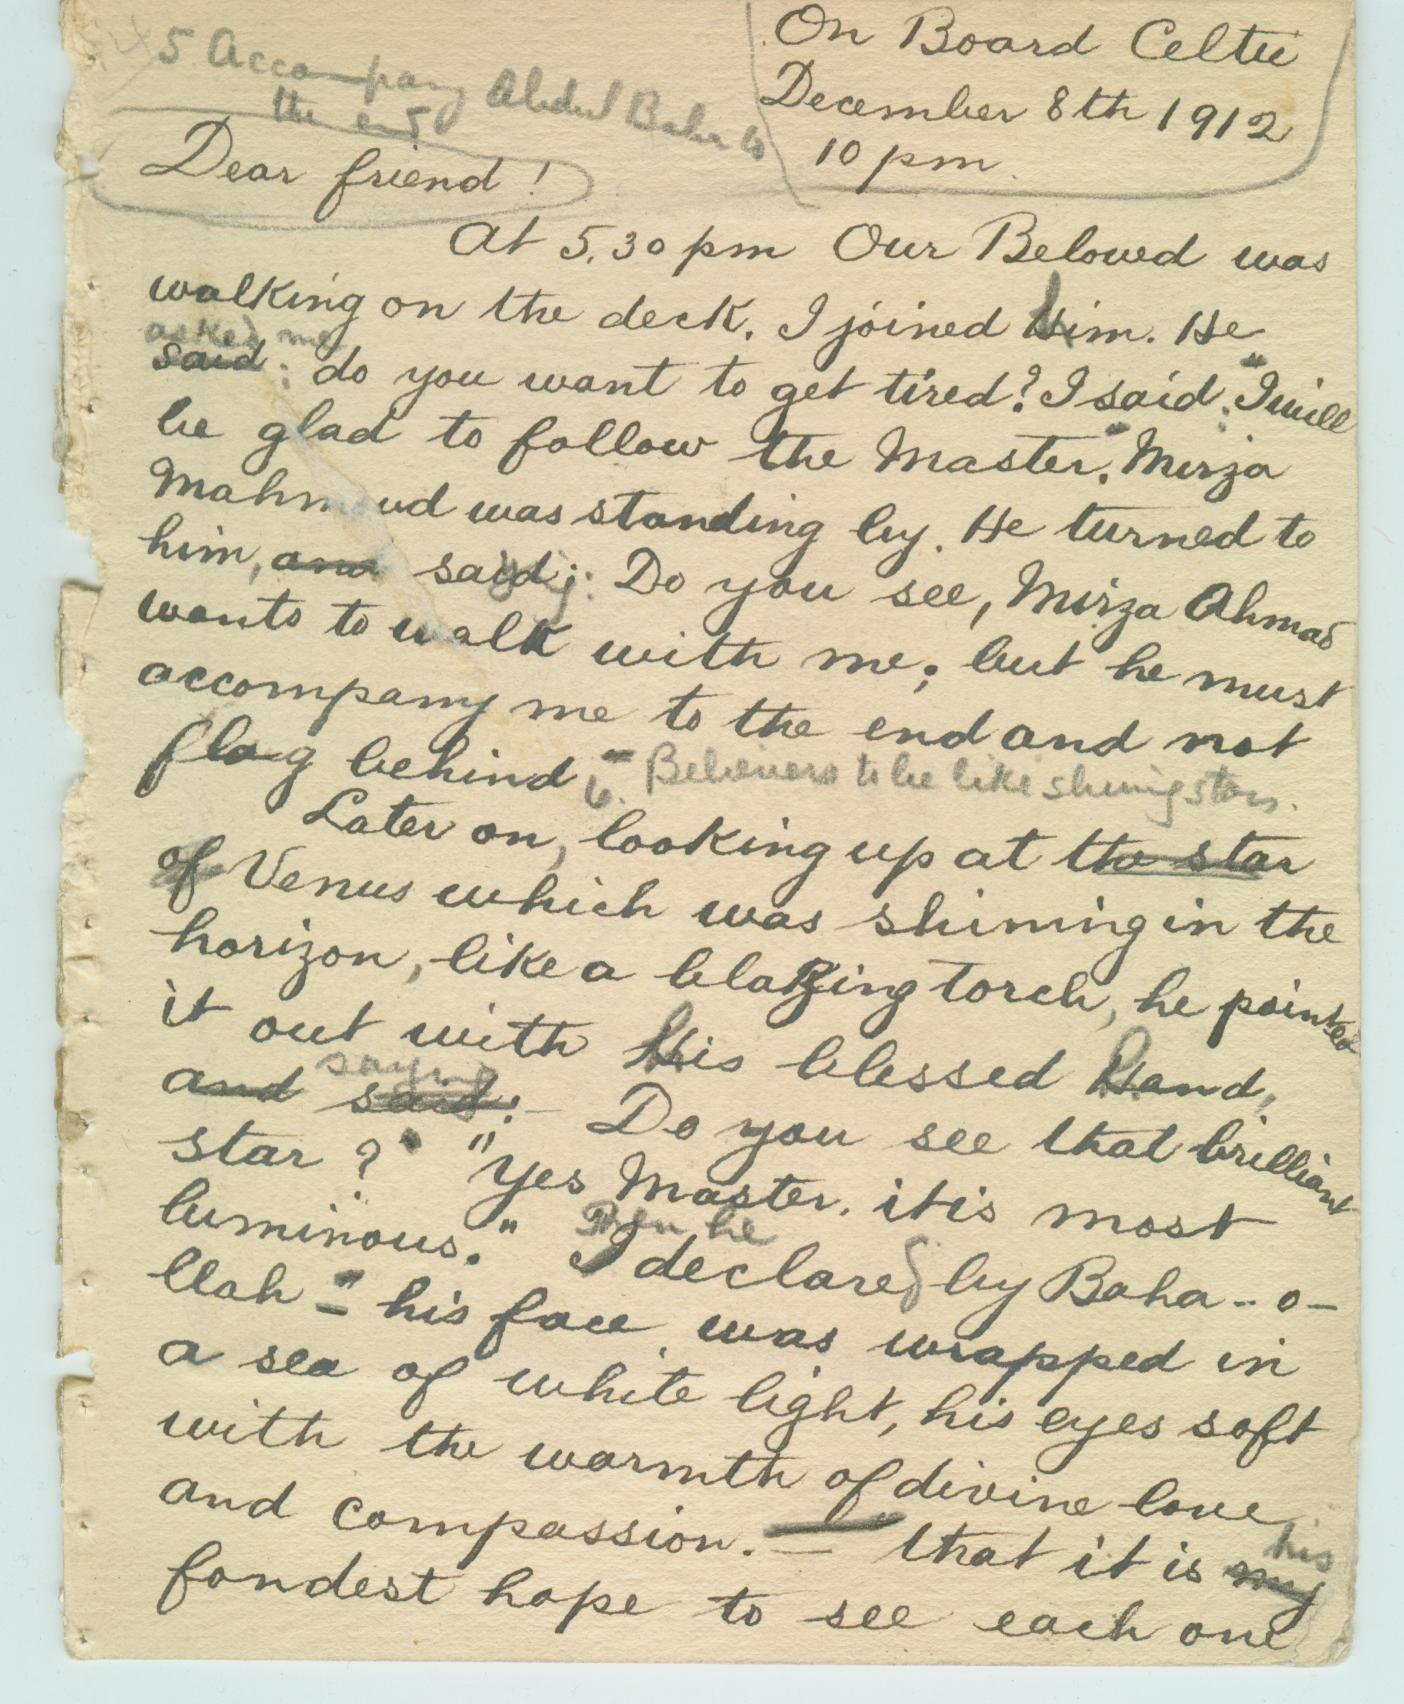 5 Accompany Abdul Baha to
the end
On Board Celtic
December 8th 1912
10 pm.
Dear friend!
At 5.30 pm Our Beloved was
walking on the deck. I joined Him. He
asked me
said: do you want to get tired? I said: "I will
be glad to follow the Master." Mirza
Mahmoud was standing by. He turned to
him, and said; Do you see, Mirza Ahmad
wants to walk with me; but he must
accompany me to the end and not
flag behind."
6. Believers to be like shining stars.
Later on, looking up at the star
of Venus which was shining in the
horizon, like a blazing torch, he pointed
it out with His blessed Hand,
saying
and said:- Do you see that brilliant
star?" "Yes Master. it is most
luminous."
Then he
I declared by Baha-o-
llah - his face was wrapped in
a sea of white light, his eyes soft
with the warmth of divine love
and compassion. - that it is my
his
fondest hope to see each one